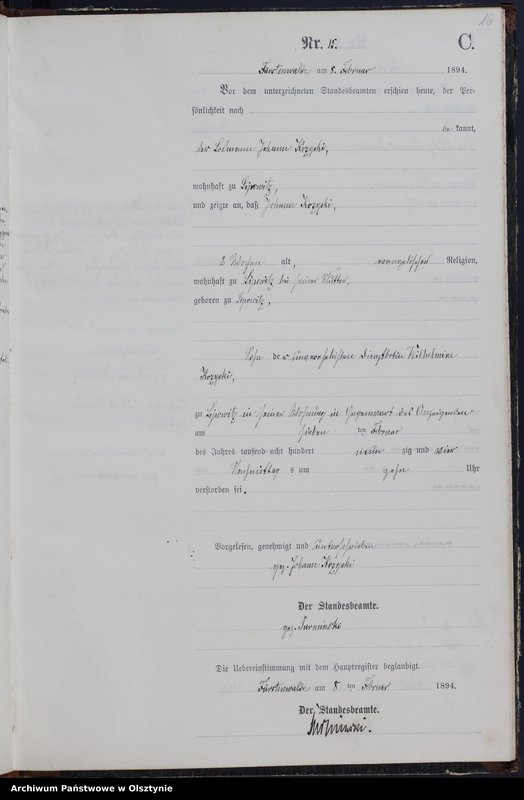 16
Nr. 15. C.
Fürstenwalde am 8. Februar 1894.
Vor dem unterzeichneten Standesbeamten erschien heute, der Per-
sönlichkeit nach
be kannt,
der Losmann Johann Kozyski,
wohnhaft zu Lipowitz,
und zeigte an, daß Johann Kozyski,
2 Wochen alt, evangelischer Religion,
wohnhaft zu Lipowitz bei seiner Mutter,
geboren zu Lipowitz,
Sohn der unverehelichten Dienstbotin Wilhelmine
Kozyski,
zu Lipowitz in seiner Wohnung in Gegenwart des Anzeigenden
am sieben ten Februar
des Jahres tausend acht hundert neun zig und vier
Nachmittag s um zehn Uhr
verstorben sei.
Vorgelesen, genehmigt und unterschrieben
gez. Johann Kozyski
Der Standesbeamte.
gez.
Die Uebereinstimmung mit dem Hauptregister beglaubigt.
Fürstenwalde am 8 ten Februar 1894.
Der Standesbeamte.
Archiwum Państwowe w Olsztynie